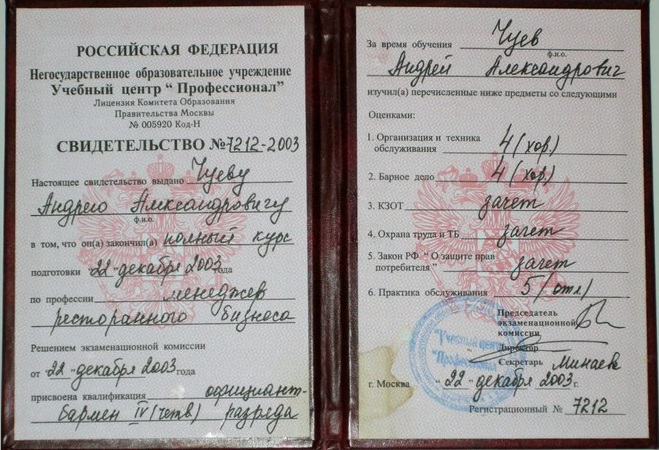 РОССИЙСКАЯ ФЕДЕРАЦИЯ
Негосударственное образовательное учреждение
Учебный центр “ Профессионал”
Лицензия Комитета Образования
Правительства Москвы
№ 005920 Код-Н
СВИДЕТЕЛЬСТВО № 7212-2003
Настоящее свидетельство выдано Чуеву
Андрею Александровичу
ф.и.о.
в том, что он(а) закончил(а) полный курс
подготовки 22 декабря 2003 года
по профессии менеджер
ресторанного бизнеса
Решением экзаменационной комиссии
от 22 декабря 2003 года
присвоена квалификация официант-
бармен IV (четв) разряда
За время обучения Чуев
ф.и.о.
Андрей Александрович
изучил(а) перечисленные ниже предметы со следующими
Оценками:
1. Организация и техника
обслуживания 4 (хор)
2. Барное дело 4 (хор)
3. КЗОТ зачет
4. Охрана труда и ТБ зачет
5. Закон РФ “ О защите прав
потребителя ” зачет
6. Практика обслуживания 5 (отл)
Председатель
экзаменационной
комиссии
Директор
Секретарь Минаева
"Учебный центр
"Профессионал"
г. Москва 22 декабря 2003 г.
Регистрационный № 7212